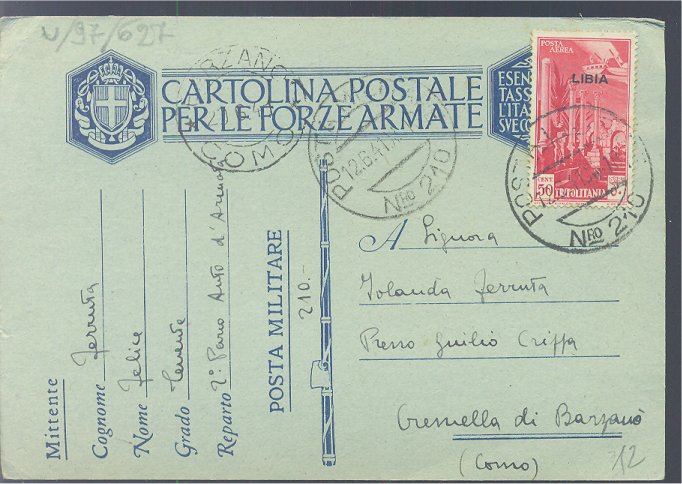 v/97/627
CARTOLINA POSTALE
PER LE FORZE ARMATE
ESEN
TASS
LITA
SVEC
POSTA
AEREA
LIBIA
CENT.
50
TRIPOLITANIA
BARZANO
COMO
12.6.41
NRO 210
POSTA MI
NRO 210
A Signora
Iolanda Ferruta
Presso Giulio Crippa
Cremella di Barzanò
(Como)
312
POSTA MILITARE
210.-
Mittente
Cognome Ferruta
Nome Felice
Grado Tenente
Reparto 2° Parco Auto d'Armata